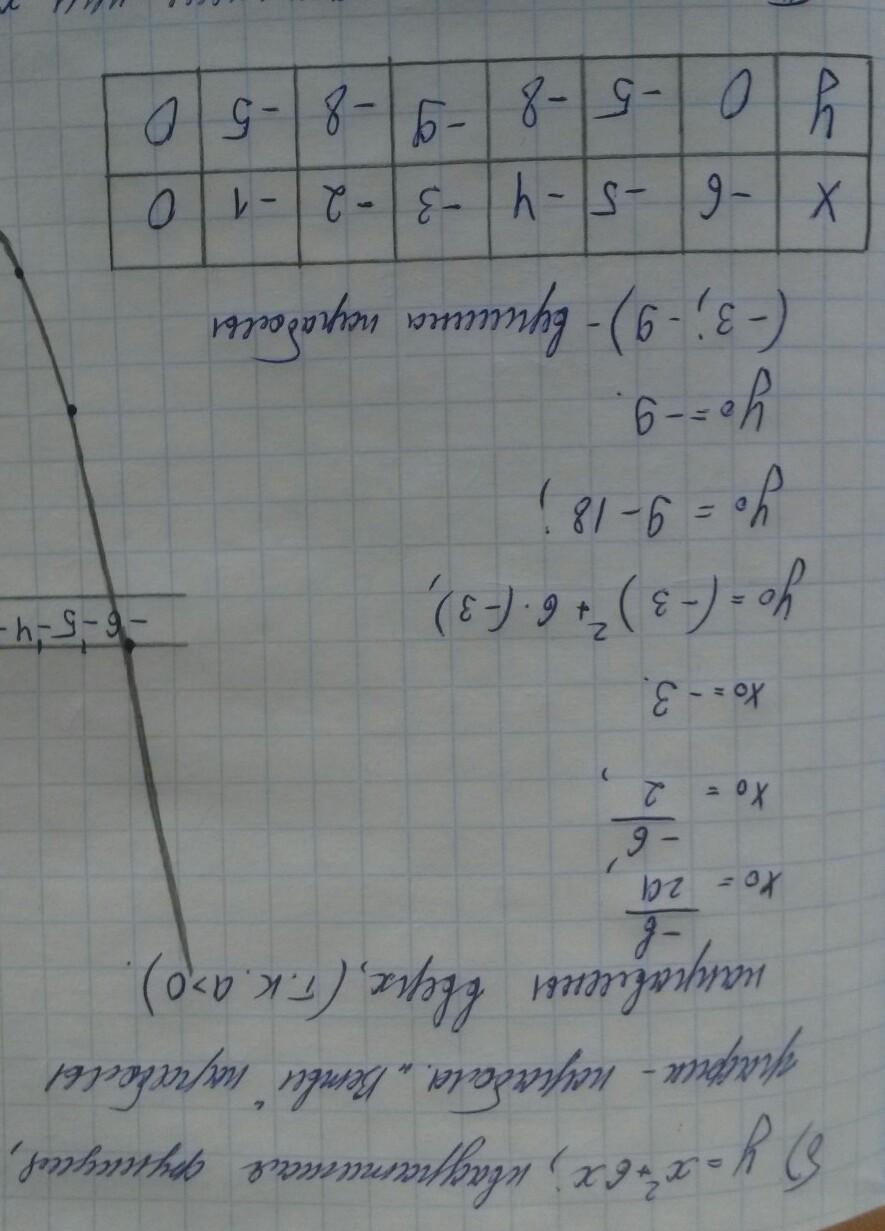 б) y = x² + 6x, квадратичная функция,
график - парабола. "Ветви" параболы
направлены вверх, (т.к. a>0).
x₀ = -b/2a,
x₀ = -6/2,
x₀ = -3.
y₀ = (-3)² + 6·(-3),
y₀ = 9 - 18;
y₀ = -9.
(-3; -9) - вершина параболы
x -6 -5 -4 -3 -2 -1 0
y 0 -5 -8 -9 -8 -5 0
-6 -5 -4 -